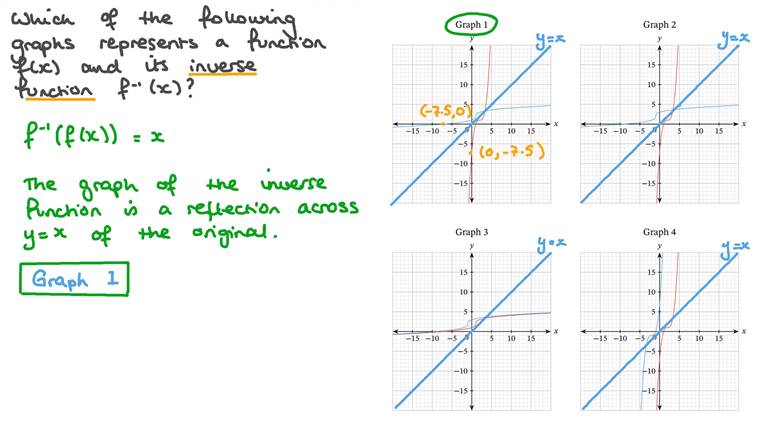 Which of the following
graphs represents a function
f(x) and its inverse
function f⁻¹(x)?
f⁻¹(f(x)) = x
The graph of the inverse
function is a reflection across
y=x of the original.
Graph 1
Graph 1
y
y=x
20 15 10 5
(-7.5,0)
−15 −10 −5 5 10 15 x
(0,-7.5)
−5 −10 −15
Graph 2
y
y=x
15 10 5
−15 −10 −5 5 10 15 x
−5 −10 −15
Graph 3
y
y=x
15 10 5
−15 −10 −5 5 10 15 x
−5 −10 −15
Graph 4
y
y=x
15 10 5
−15 −10 −5 5 10 15 x
−5 −10 −15